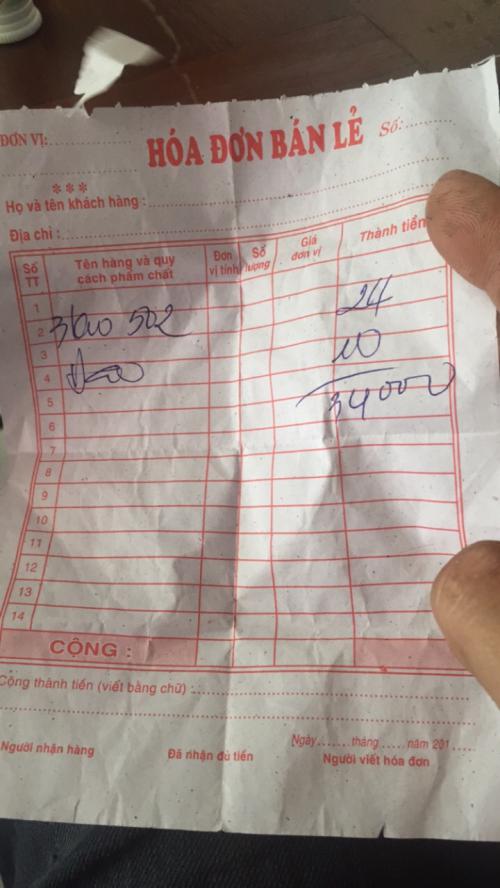 ĐƠN VỊ:.................. HÓA ĐƠN BÁN LẺ Số:............
***
Họ và tên khách hàng :..................
Địa chỉ :..................
Số TT Tên hàng và quy cách phẩm chất Đơn vị tính Số lượng Giá đơn vị Thành tiền
1
2 3 bao 502 24
3 10
4
5 34000
6
7
8
9
10
11
12
13
14
CỘNG :
Cộng thành tiền (viết bằng chữ) :..................
Ngày....... tháng ..... năm 201.....
Người nhận hàng Đã nhận đủ tiền Người viết hóa đơn